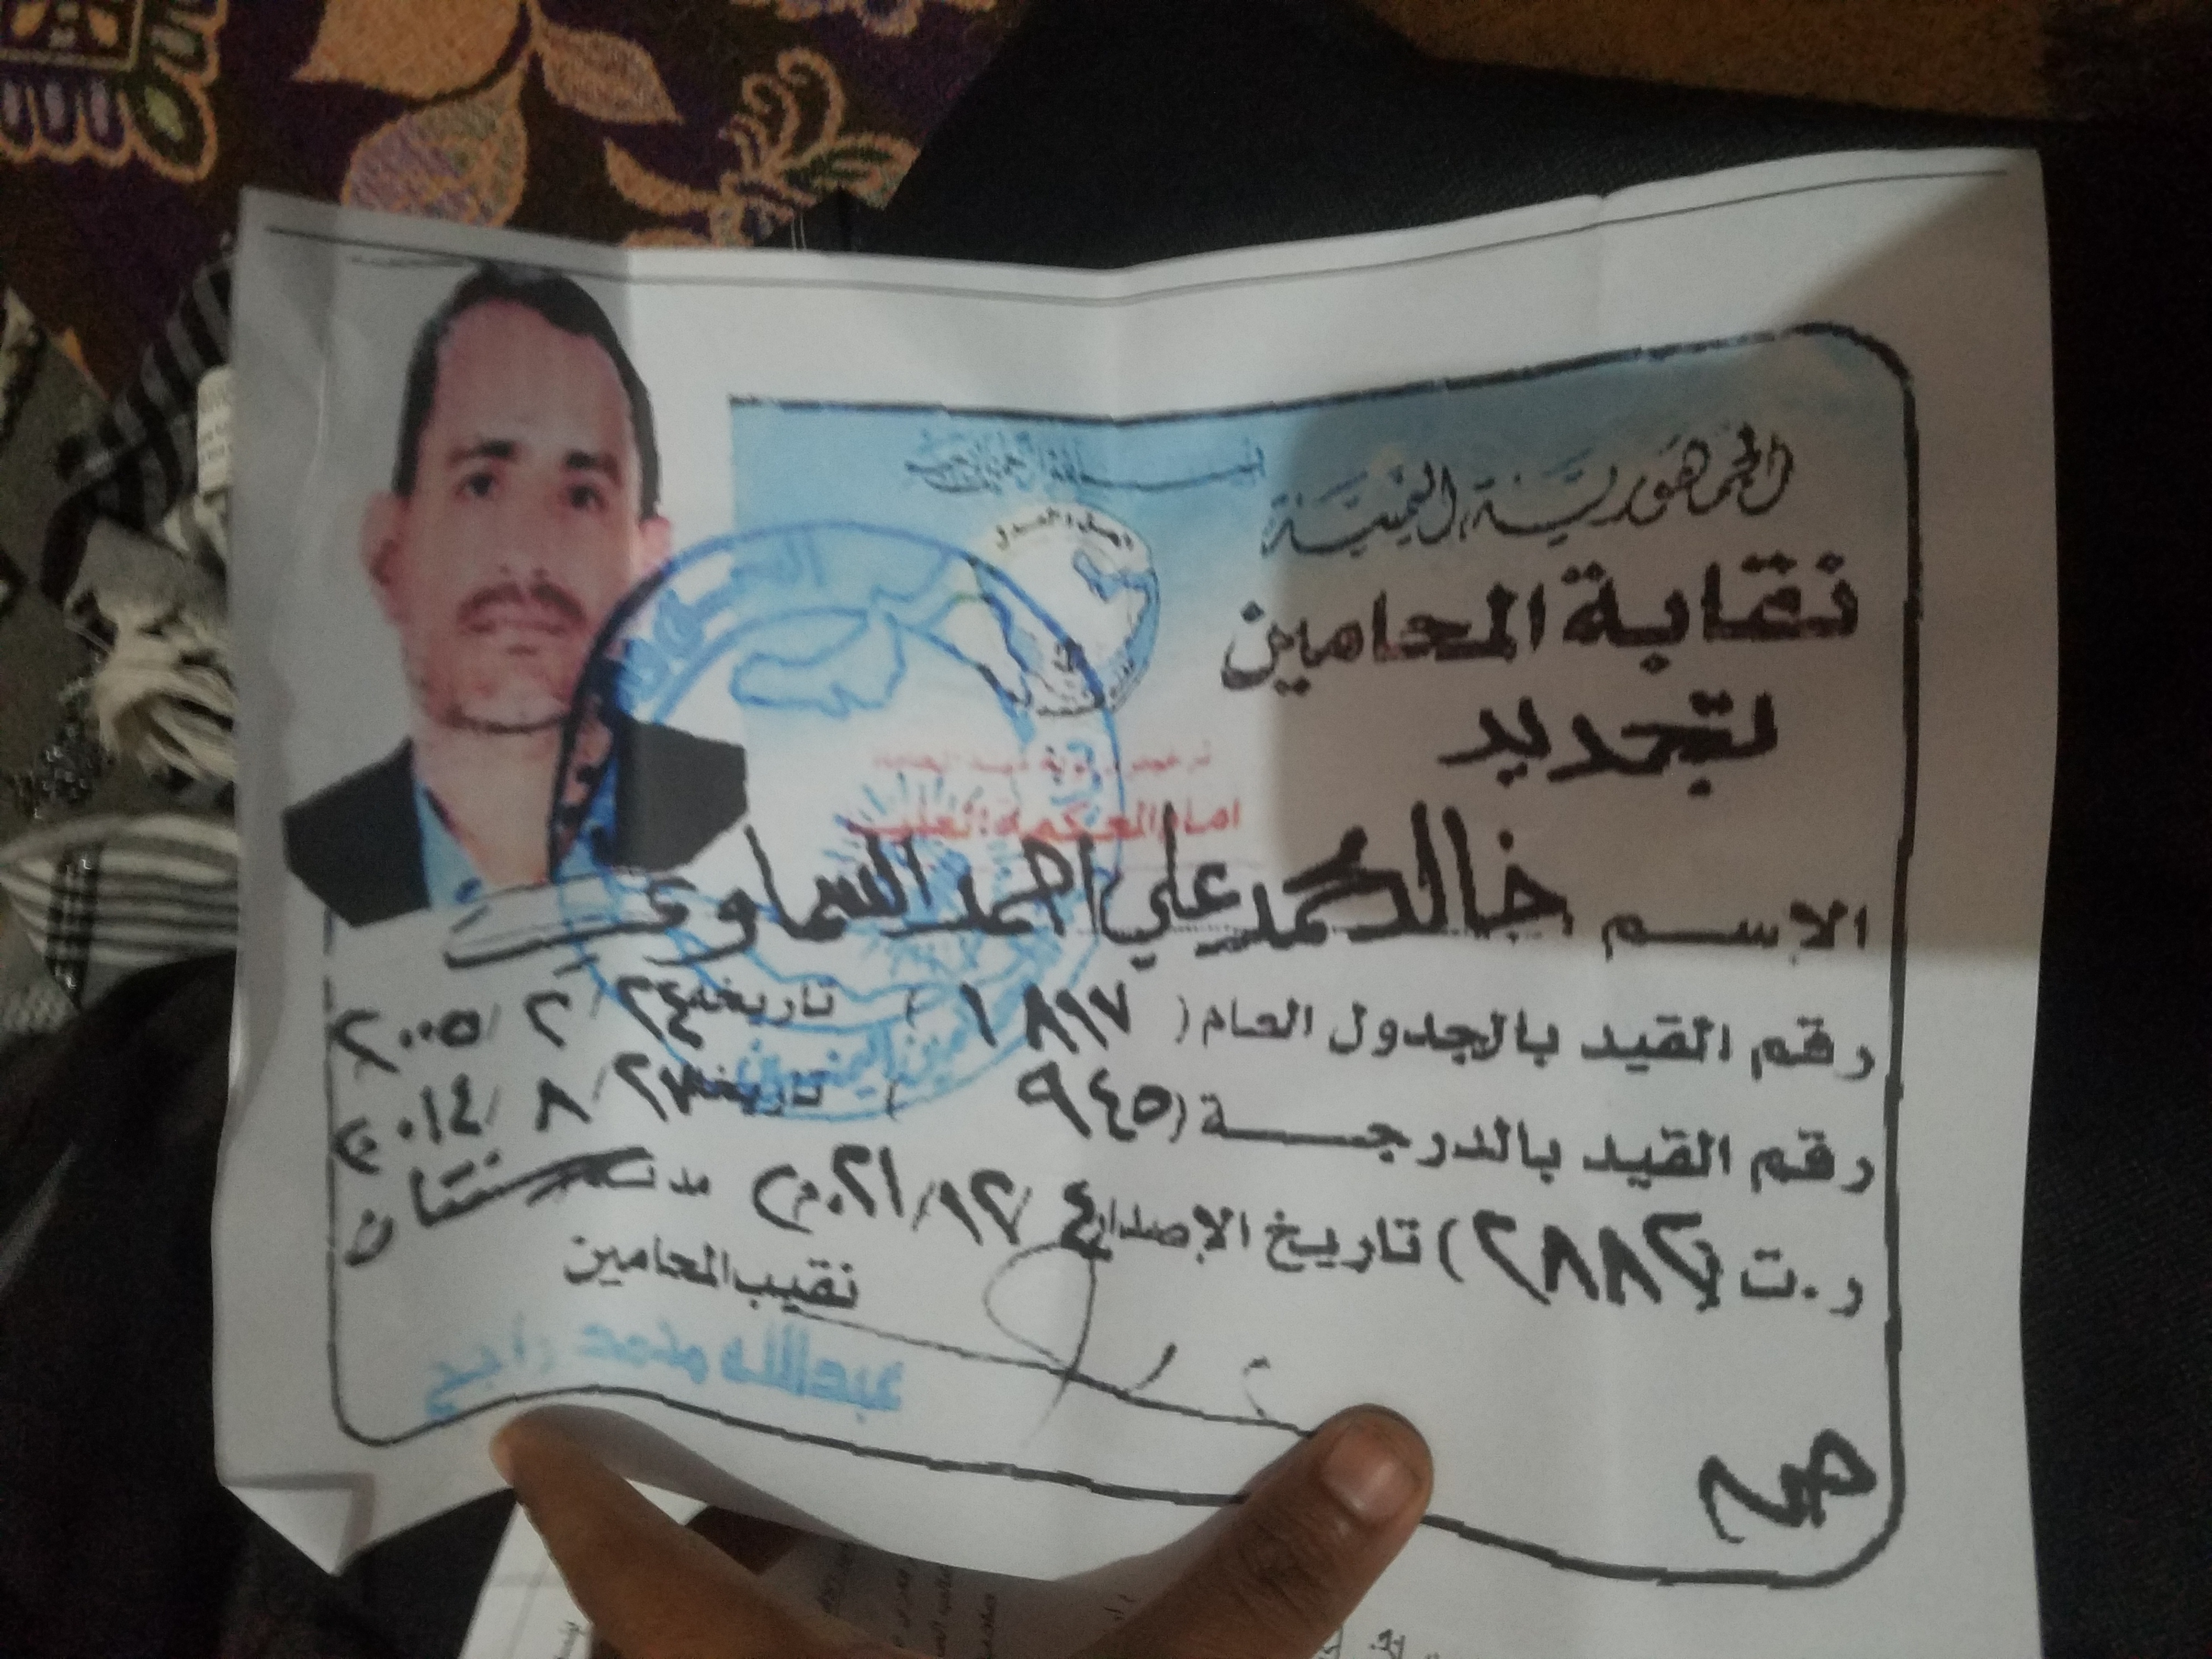 الجمهورية اليمنية
نقابة المحامين
تجديد
امام المحكمة العليا
الإسم خالد محمد علي احمد السماوي
رقم القيد بالجدول العام ( ١٨٩٧ ) تاريخه ٢٤ / ٢ / ٢٠٠٥
رقم القيد بالدرجة ( ٩٤٥ ) تاريخه ٢٧ / ٨ / ٢٠١٤
ر.ت ( ٢٨٨٢ ) تاريخ الإصدار ٤ / ١٢ / ٢٠٢١م مدته سنتان
نقيب المحامين
عبدالله محمد راجح